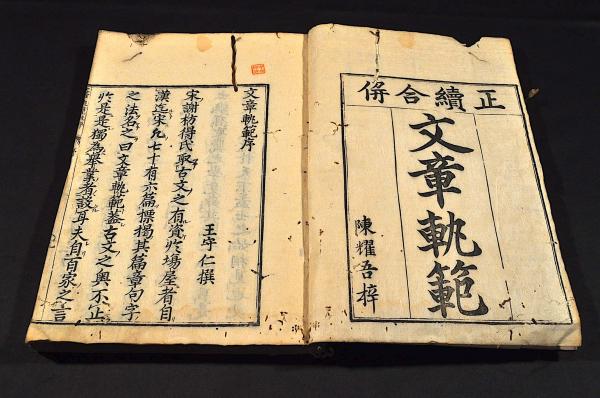 正續合併
文章軌範
陳耀吾梓
文章軌範序
王守仁撰
宋謝枋得氏取古文之有資於場屋者自
漢迄宋凡六十有九篇標揭其篇章句字
之法名之曰文章軌範蓋古文之奧不止
於是是獨為舉業者設耳夫自百家之言